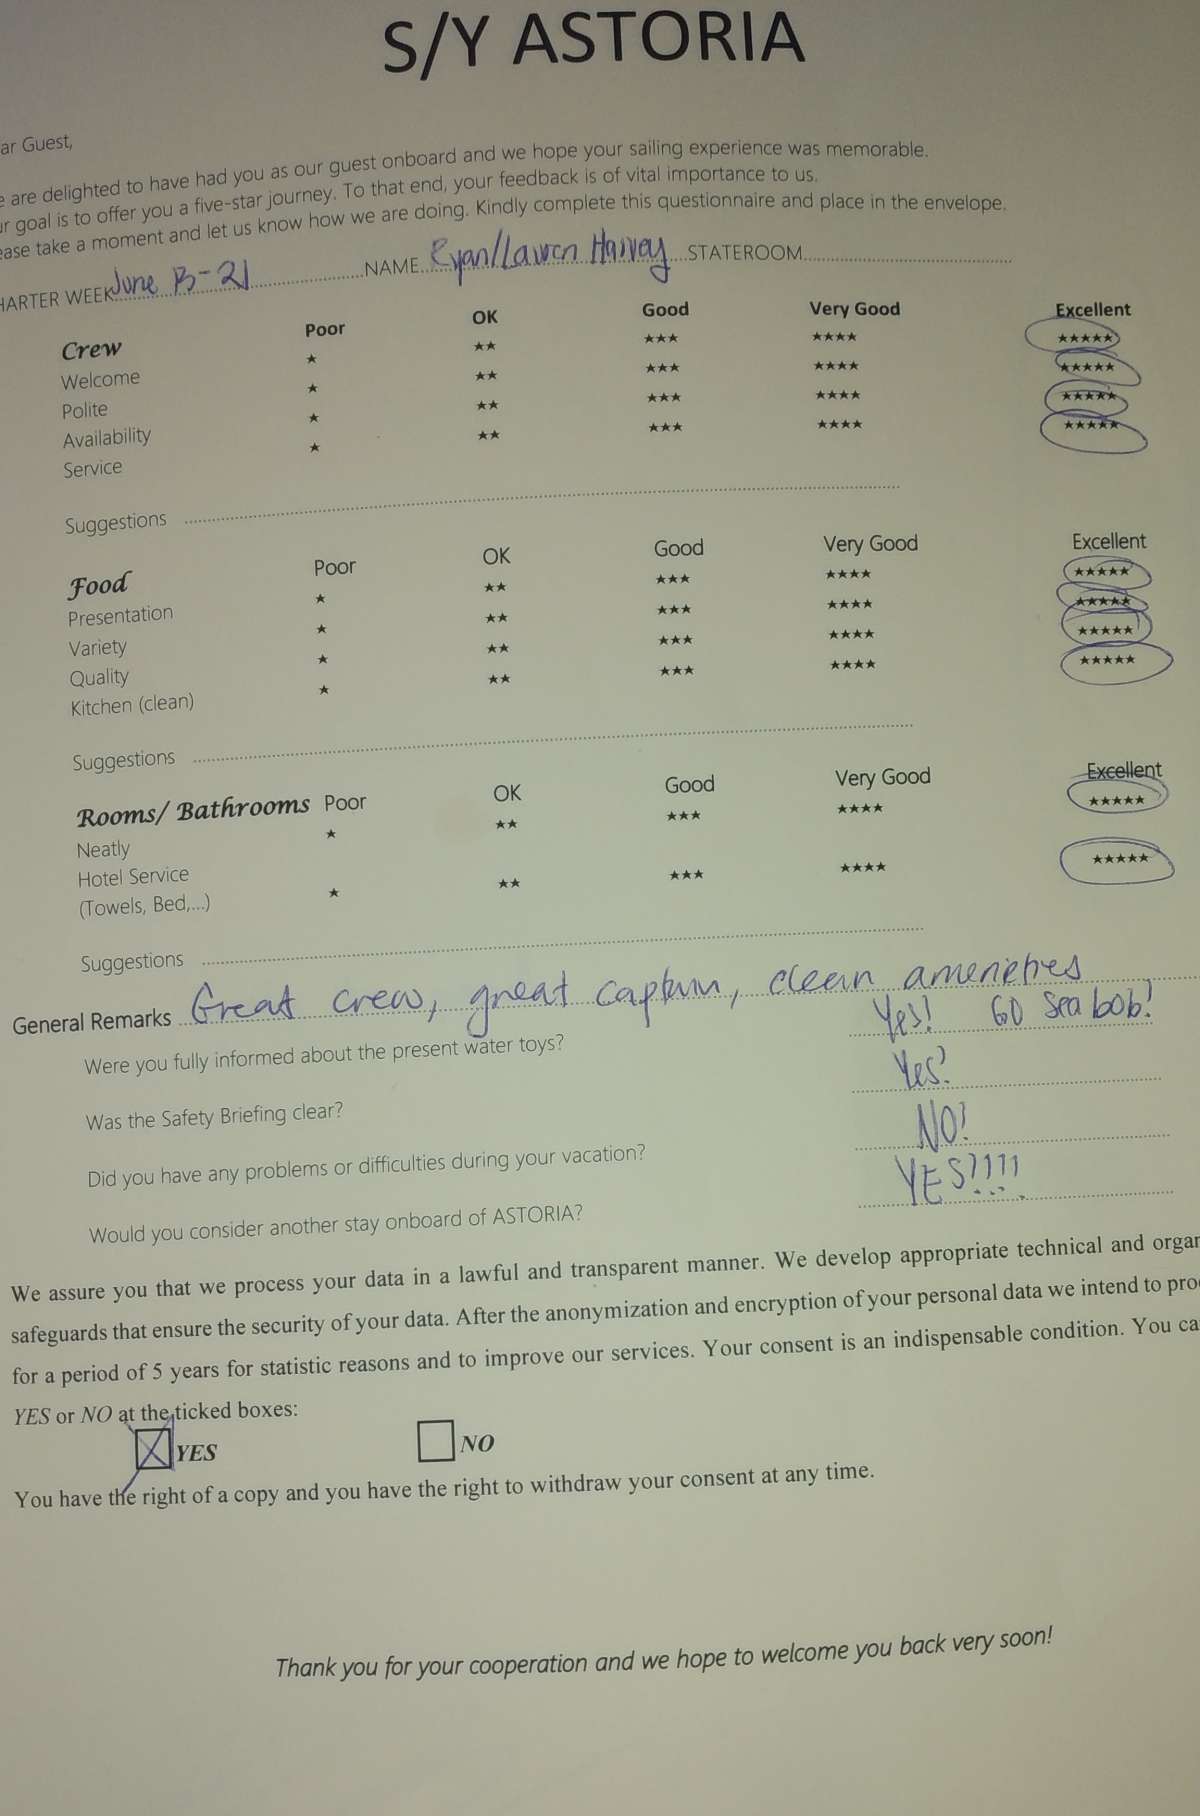 S/Y ASTORIA
ar Guest,
e are delighted to have had you as our guest onboard and we hope your sailing experience was memorable.
ur goal is to offer you a five-star journey. To that end, your feedback is of vital importance to us.
ease take a moment and let us know how we are doing. Kindly complete this questionnaire and place in the envelope.
HARTER WEEK June 13-21 NAME Ryan/Lauren Harvey STATEROOM
Crew Poor OK Good Very Good Excellent
Welcome ★ ★★ ★★★ ★★★★ ★★★★★
Polite ★ ★★ ★★★ ★★★★ ★★★★★
Availability ★ ★★ ★★★ ★★★★ ★★★★★
Service ★ ★★ ★★★ ★★★★ ★★★★★
Suggestions
Food Poor OK Good Very Good Excellent
Presentation ★ ★★ ★★★ ★★★★ ★★★★★
Variety ★ ★★ ★★★ ★★★★ ★★★★★
Quality ★ ★★ ★★★ ★★★★ ★★★★★
Kitchen (clean) ★ ★★ ★★★ ★★★★ ★★★★★
Suggestions
Rooms/ Bathrooms Poor OK Good Very Good Excellent
Neatly ★ ★★ ★★★ ★★★★ ★★★★★
Hotel Service
(Towels, Bed,...) ★ ★★ ★★★ ★★★★ ★★★★★
Suggestions
General Remarks Great crew, great captain, clean amenities
Were you fully informed about the present water toys? Yes! GO Sea bob!
Was the Safety Briefing clear? Yes!
Did you have any problems or difficulties during your vacation? NO!
Would you consider another stay onboard of ASTORIA? YES!!!!
We assure you that we process your data in a lawful and transparent manner. We develop appropriate technical and organ
safeguards that ensure the security of your data. After the anonymization and encryption of your personal data we intend to pro
for a period of 5 years for statistic reasons and to improve our services. Your consent is an indispensable condition. You ca
YES or NO at the ticked boxes:
YES NO
You have the right of a copy and you have the right to withdraw your consent at any time.
Thank you for your cooperation and we hope to welcome you back very soon!